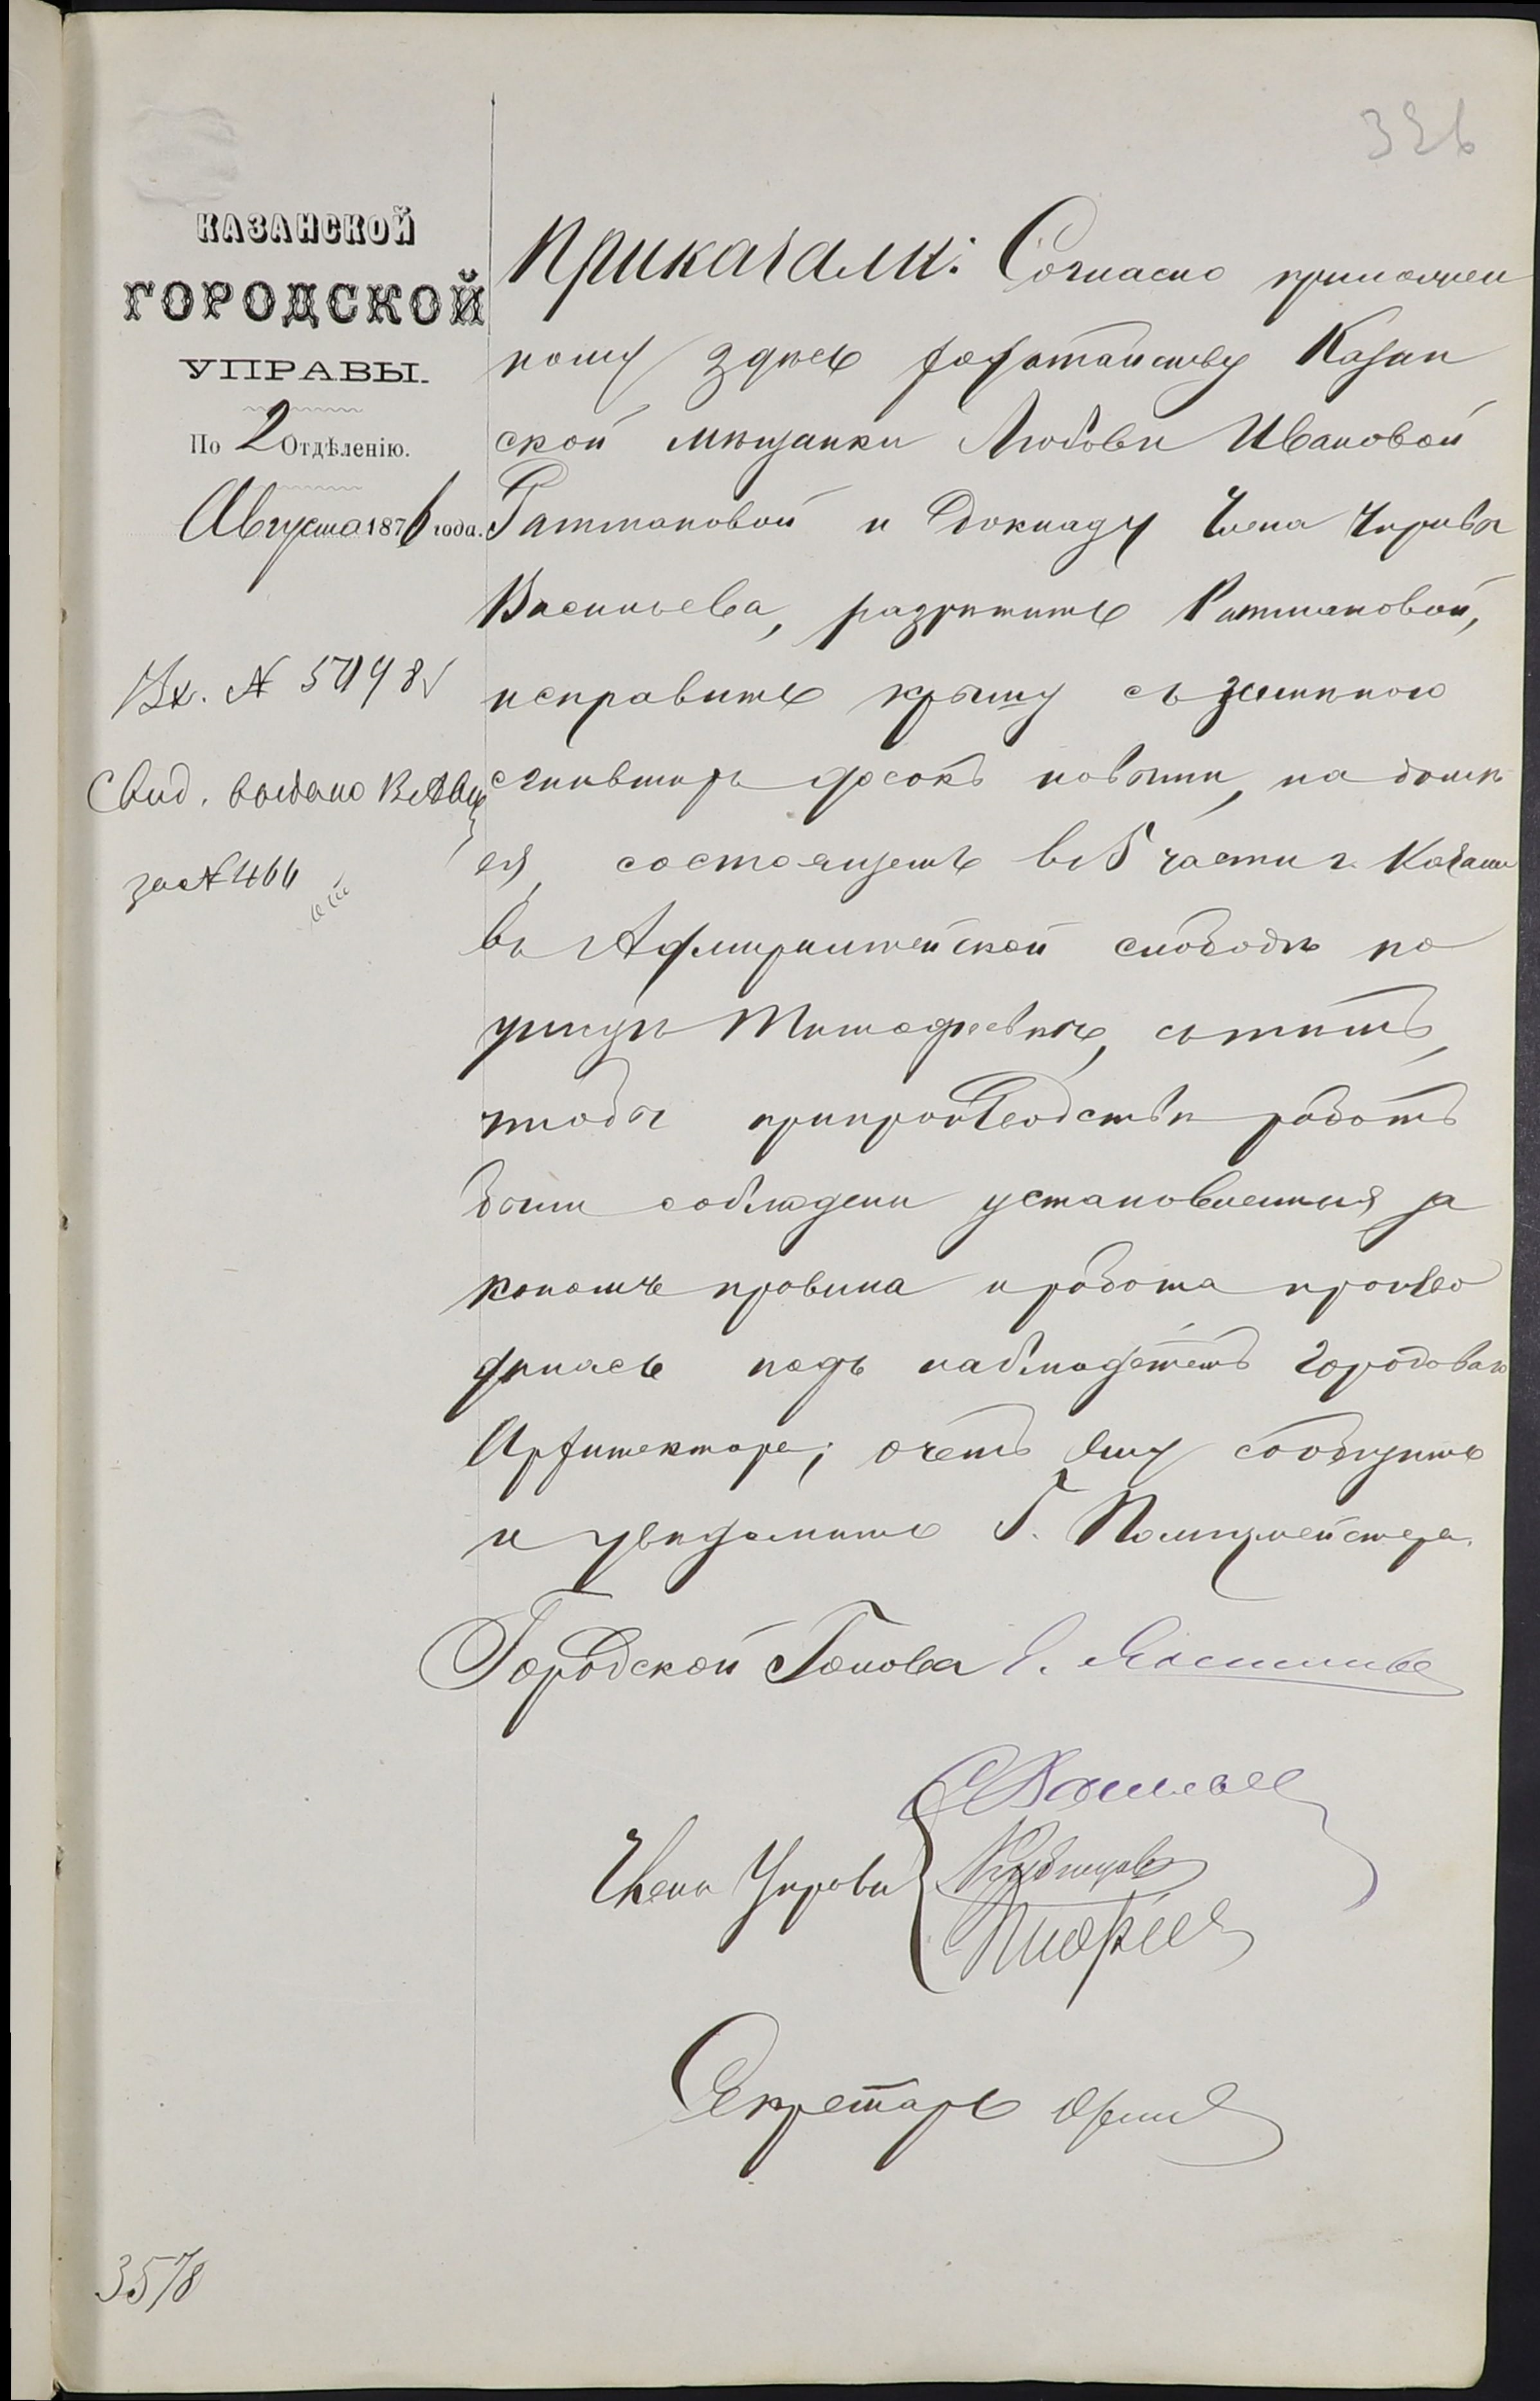 326
КАЗАНСКОЙ
ГОРОДСКОЙ
УПРАВЫ.
По 2 Отдѣленію.
Августа 1876 года.
Вх. №
Свид. выдано
за № 466
Приказали: Согласно приложен
ному здѣсь ходатайству Казан
ской мѣщанки Любови Ивановой
Ратмановой и докладу Члена Управы
Васильева, разрѣшить Ратмановой,
исправить крышу съ замѣною
сгнившихъ досокъ новыми, на домѣ
ея, состоящемъ въ 5 части г. Казани
въ Адмиралтейской слободѣ по
улицѣ Тимофеевкѣ, съ тѣмъ,
чтобы при производствѣ работъ
были соблюдены установленныя за
кономъ правила и работа произво
дилась подъ наблюдетемъ Городоваго
Архитектора; о чемъ ему сообщить
и увѣдомить Г. Полицмейстера.
Городской Голова Э. Янишевс
Васильев
Члены Управы
Секретарь
3578